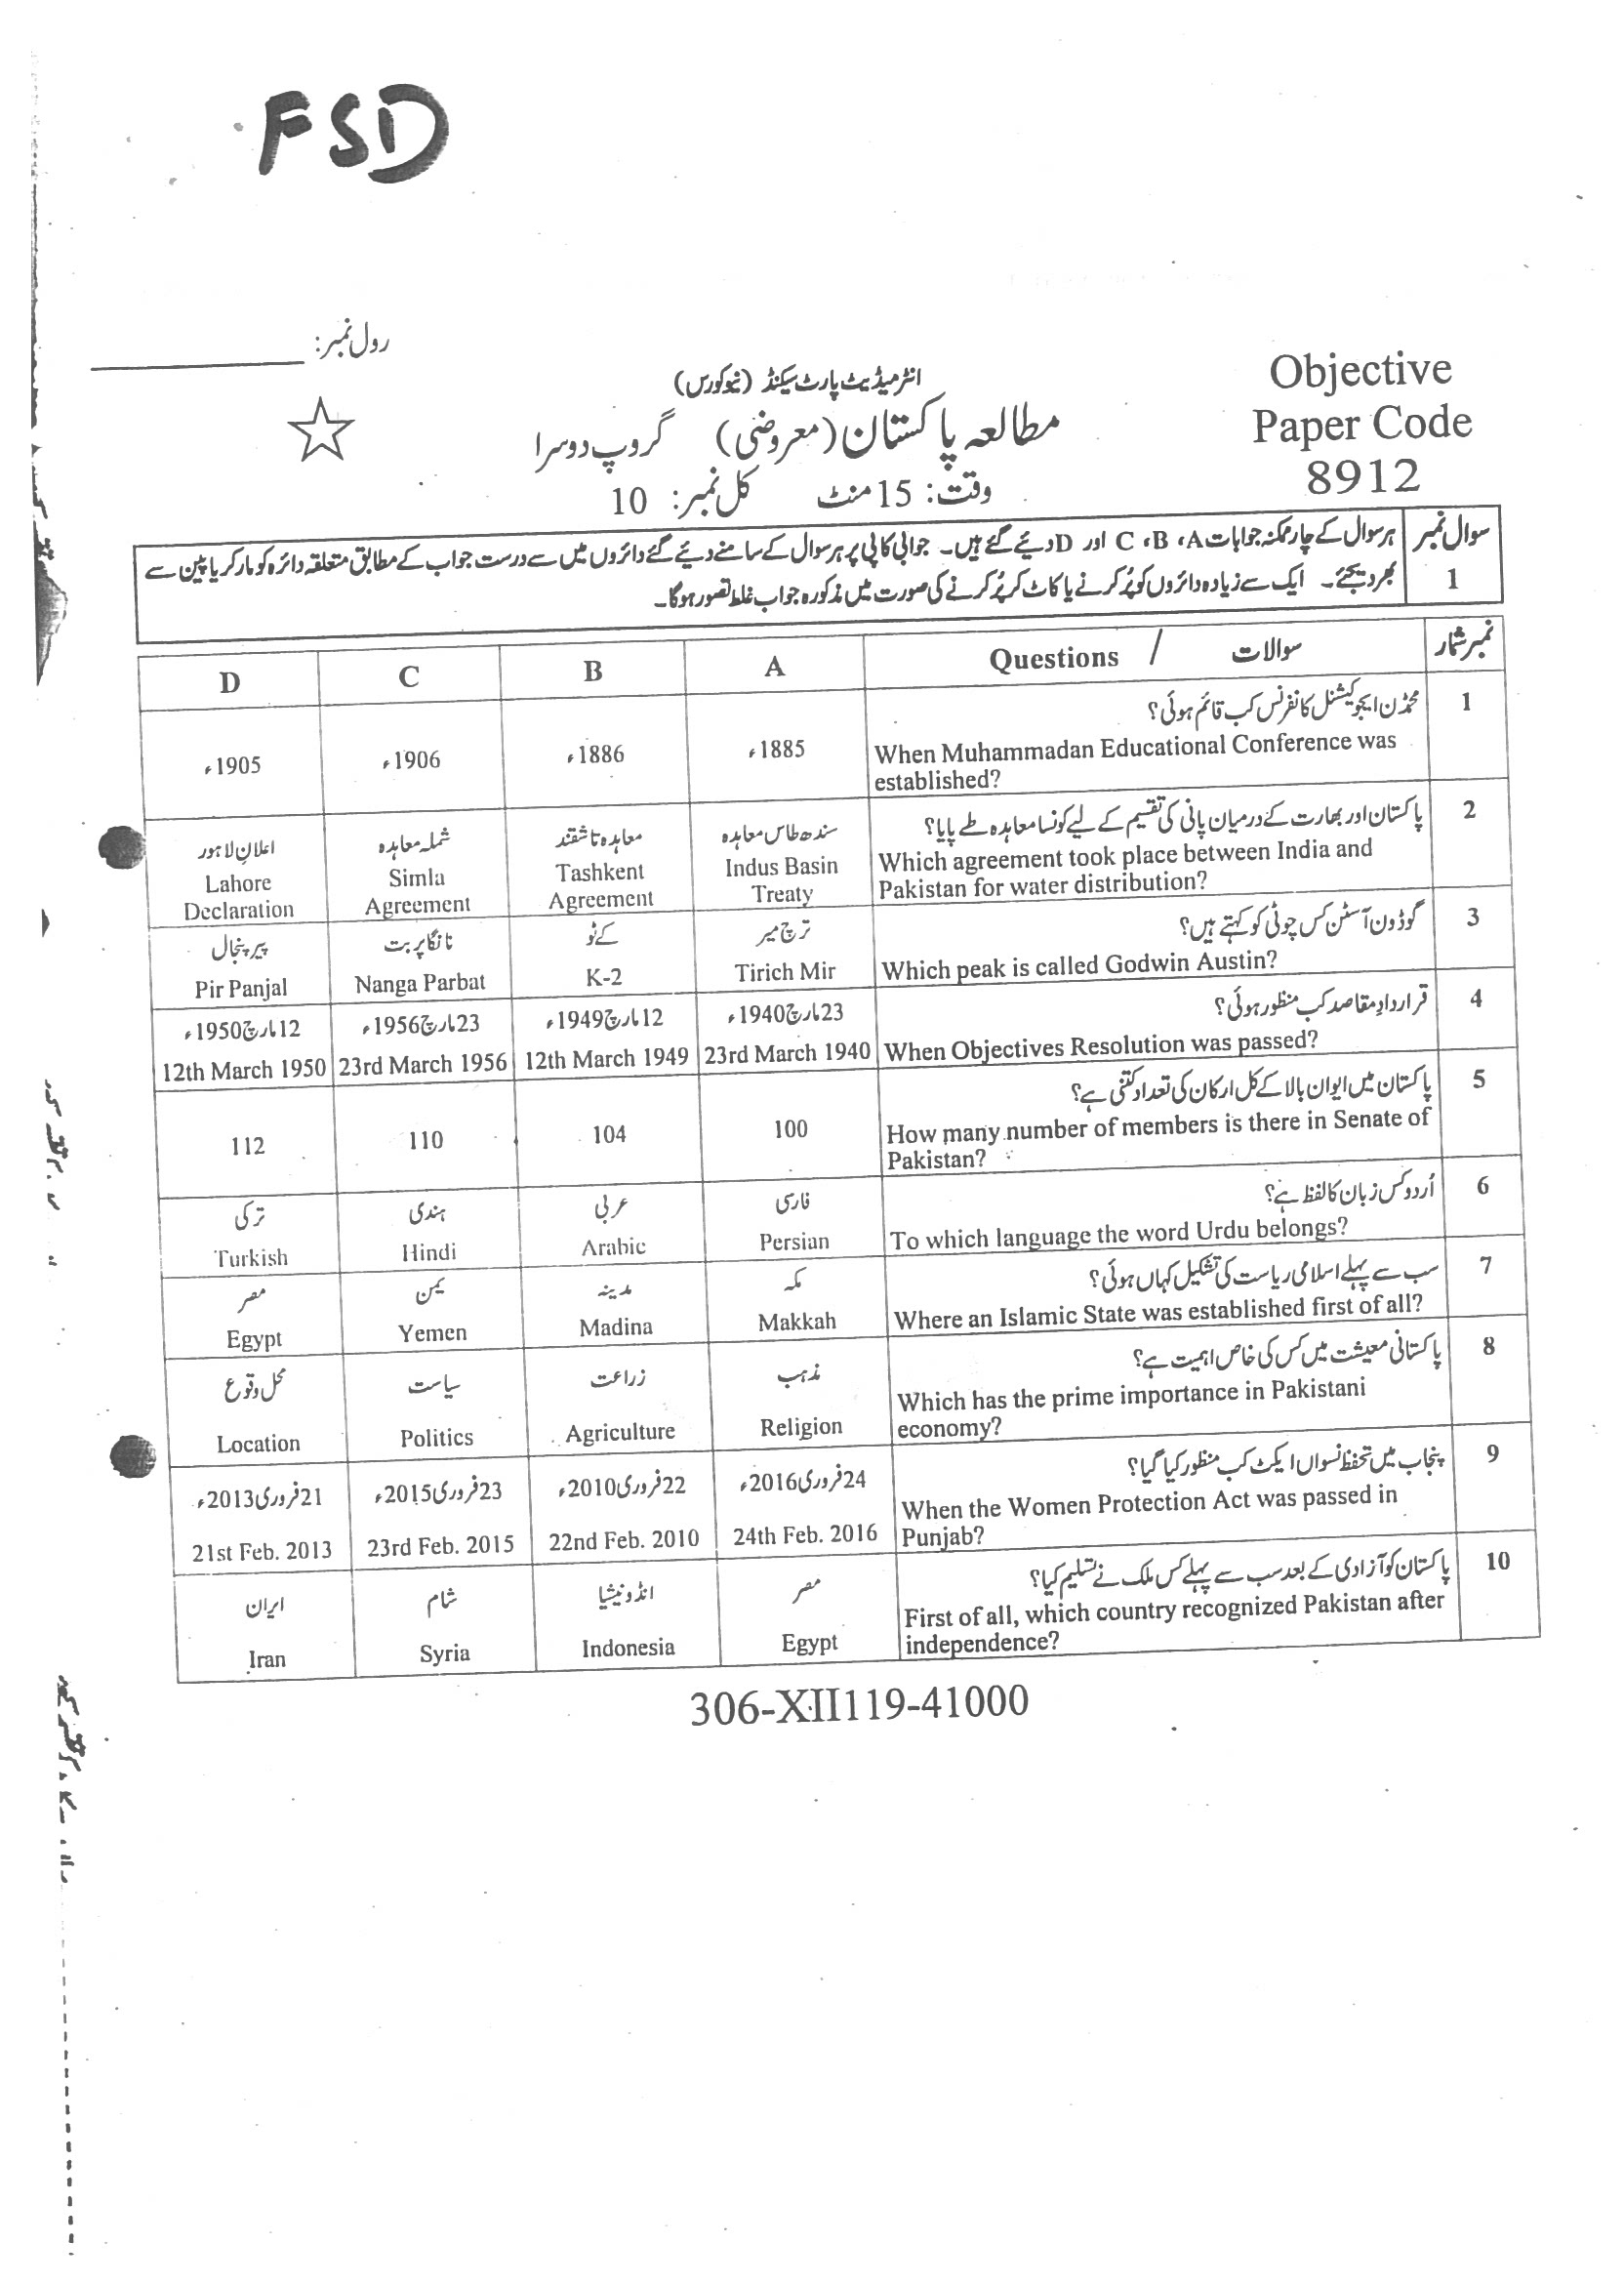 FSD
رول نمبر: ____________
انٹرمیڈیٹ پارٹ سیکنڈ (نیو کورس)
مطالعہ پاکستان (معروضی) گروپ دوسرا
وقت: 15 منٹ کل نمبر: 10
Objective
Paper Code
8912
سوال نمبر 1
ہر سوال کے چار ممکنہ جوابات A، B، C اور D دیئے گئے ہیں۔ جوابی کاپی پر ہر سوال کے سامنے دیئے گئے دائروں میں سے درست جواب کے مطابق متعلقہ دائرہ کو مارکر یا پین سے
بھر دیجئے۔ ایک سے زیادہ دائروں کو پُر کرنے یا کاٹ کر پُر کرنے کی صورت میں مذکورہ جواب غلط تصور ہوگا۔
نمبر شمار سوالات / Questions A B C D
1 محمڈن ایجوکیشنل کانفرنس کب قائم ہوئی؟
When Muhammadan Educational Conference was
established?
1885ء 1886ء 1906ء 1905ء
2 پاکستان اور بھارت کے درمیان پانی کی تقسیم کے لیے کونسا معاہدہ طے پایا؟
Which agreement took place between India and
Pakistan for water distribution?
سندھ طاس معاہدہ معاہدہ تاشقند شملہ معاہدہ اعلانِ لاہور
Indus Basin Tashkent Simla Lahore
Treaty Agreement Agreement Declaration
3 گوڈون آسٹن کس چوٹی کو کہتے ہیں؟
Which peak is called Godwin Austin?
ترچ میر کے ٹو نانگا پربت پیر پنجال
Tirich Mir K-2 Nanga Parbat Pir Panjal
4 قراردادِ مقاصد کب منظور ہوئی؟
When Objectives Resolution was passed?
23 مارچ 1940ء 12 مارچ 1949ء 23 مارچ 1956ء 12 مارچ 1950ء
23rd March 1940 12th March 1949 23rd March 1956 12th March 1950
5 پاکستان میں ایوان بالا کے کل ارکان کی تعداد کتنی ہے؟
How many number of members is there in Senate of
Pakistan?
100 104 110 112
6 اُردو کس زبان کا لفظ ہے؟
To which language the word Urdu belongs?
فارسی عربی ہندی ترکی
Persian Arabic Hindi Turkish
7 سب سے پہلے اسلامی ریاست کی تشکیل کہاں ہوئی؟
Where an Islamic State was established first of all?
مکہ مدینہ یمن مصر
Makkah Madina Yemen Egypt
8 پاکستانی معیشت میں کس کی خاص اہمیت ہے؟
Which has the prime importance in Pakistani
economy?
مذہب زراعت سیاست محل وقوع
Religion Agriculture Politics Location
9 پنجاب میں تحفظ نسواں ایکٹ کب منظور کیا گیا؟
When the Women Protection Act was passed in
Punjab?
24 فروری 2016ء 22 فروری 2010ء 23 فروری 2015ء 21 فروری 2013ء
24th Feb. 2016 22nd Feb. 2010 23rd Feb. 2015 21st Feb. 2013
10 پاکستان کو آزادی کے بعد سب سے پہلے کس ملک نے تسلیم کیا؟
First of all, which country recognized Pakistan after
independence?
مصر انڈونیشیا شام ایران
Egypt Indonesia Syria Iran
306-XII119-41000